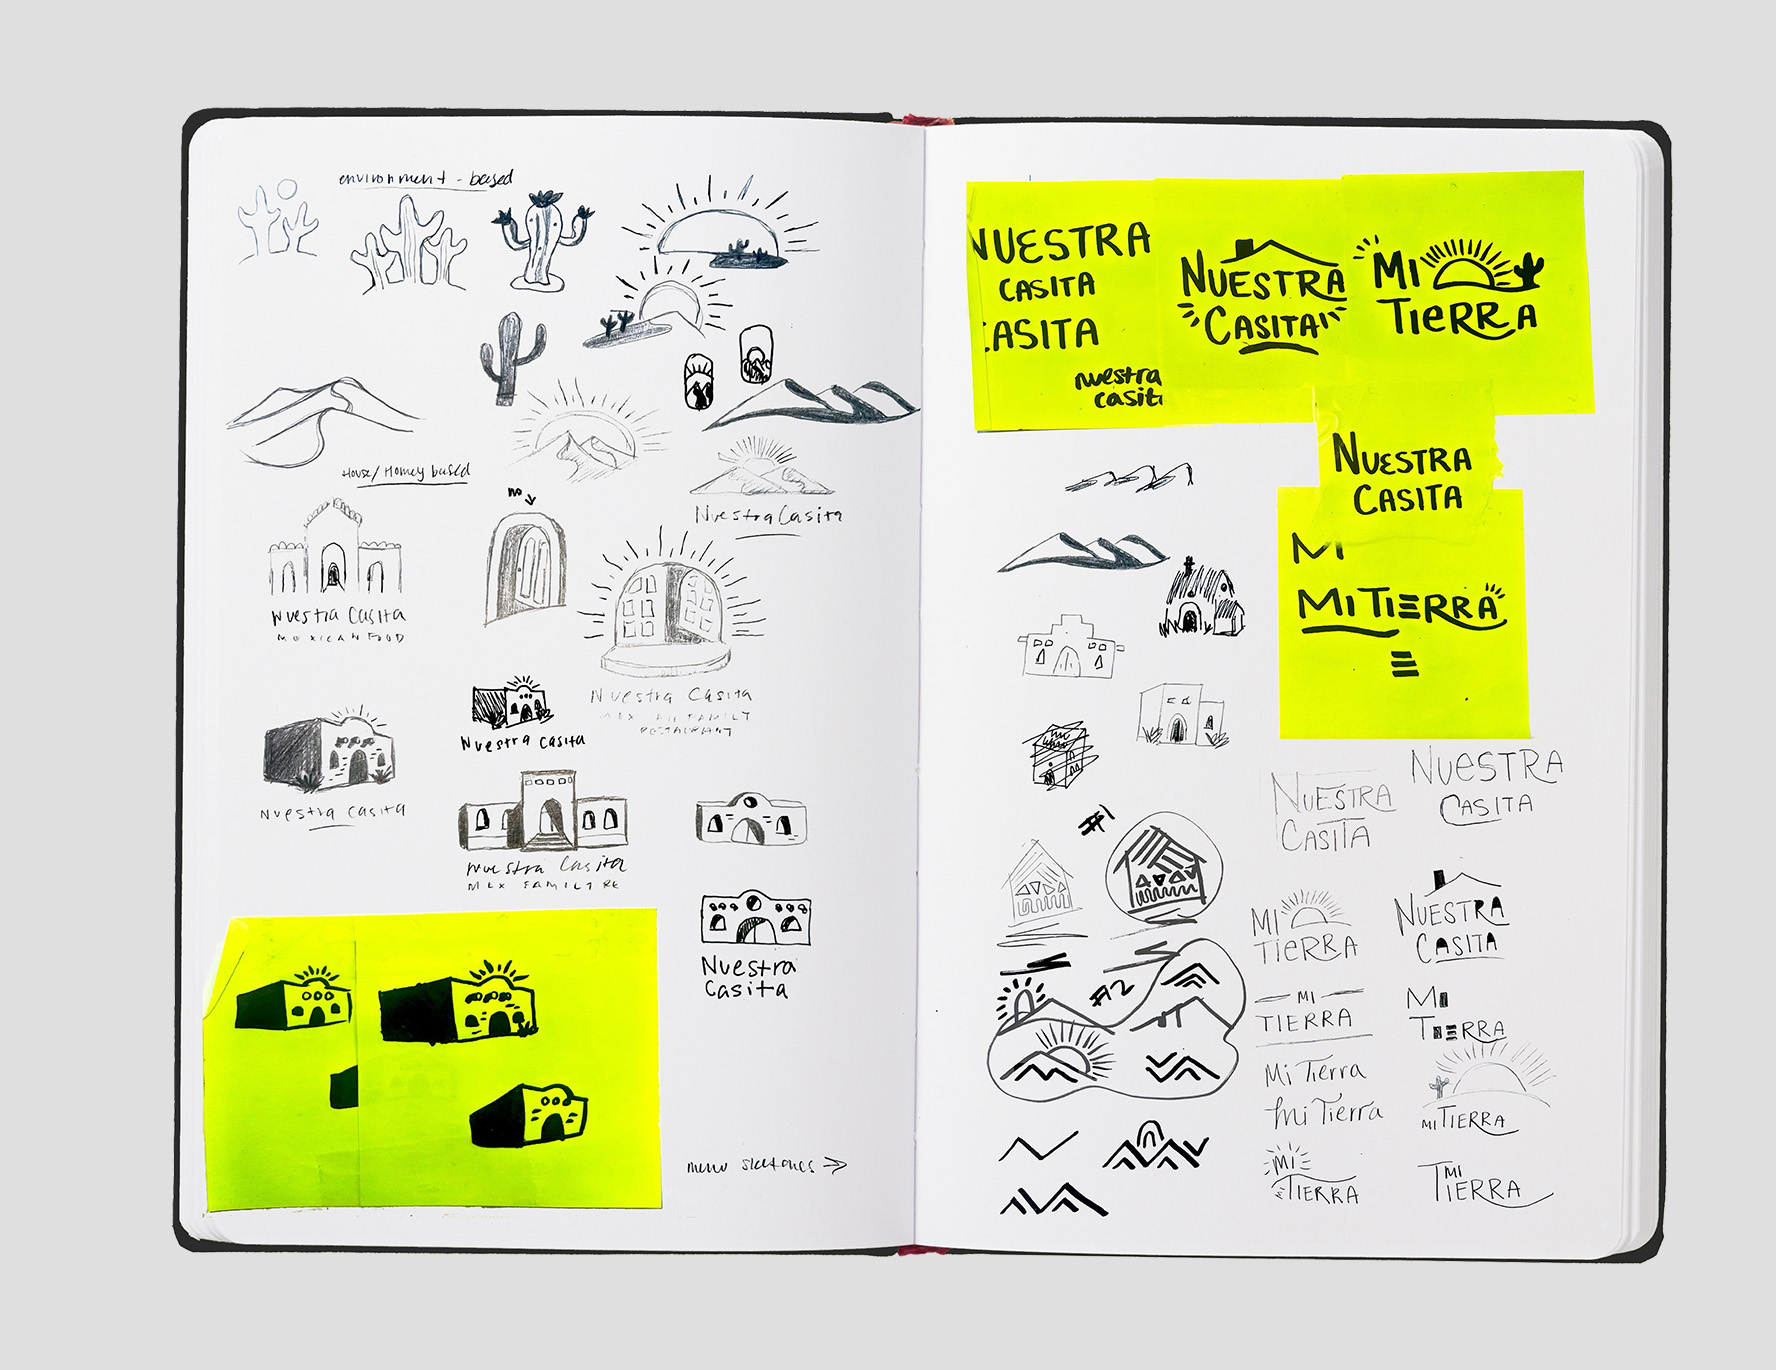 environment - based
House/Homey based
Nuestra Casita
no
Nuestra Casita
MEXICAN FOOD
Nuestra Casita
Nuestra Casita
MEXICAN FAMILY
RESTAURANT
Nuestra Casita
Nuestra Casita
MEX FAMILY RE
Nuestra
Casita
menu sketches
NUESTRA
CASITA
CASITA
nuestra
casit
NUESTRA
CASITA
MI
TIERRA
NUESTRA
CASITA
MI
MI TIERRA
NUESTRA
CASITA
NUESTRA
CASITA
#1
#2
MI
TIERRA
NUESTRA
CASITA
MI
TIERRA
MI
TIERRA
Mi Tierra
Mi Tierra
MI TIERRA
MI
TIERRA
MI
TIERRA